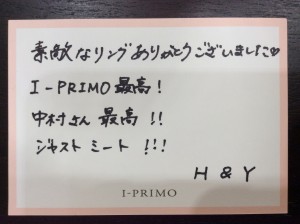 素敵なリングありがとうございました♡
I-PRIMO 最高!
中村さん 最高!!
ジャスト ミート!!!
H & Y
I-PRIMO